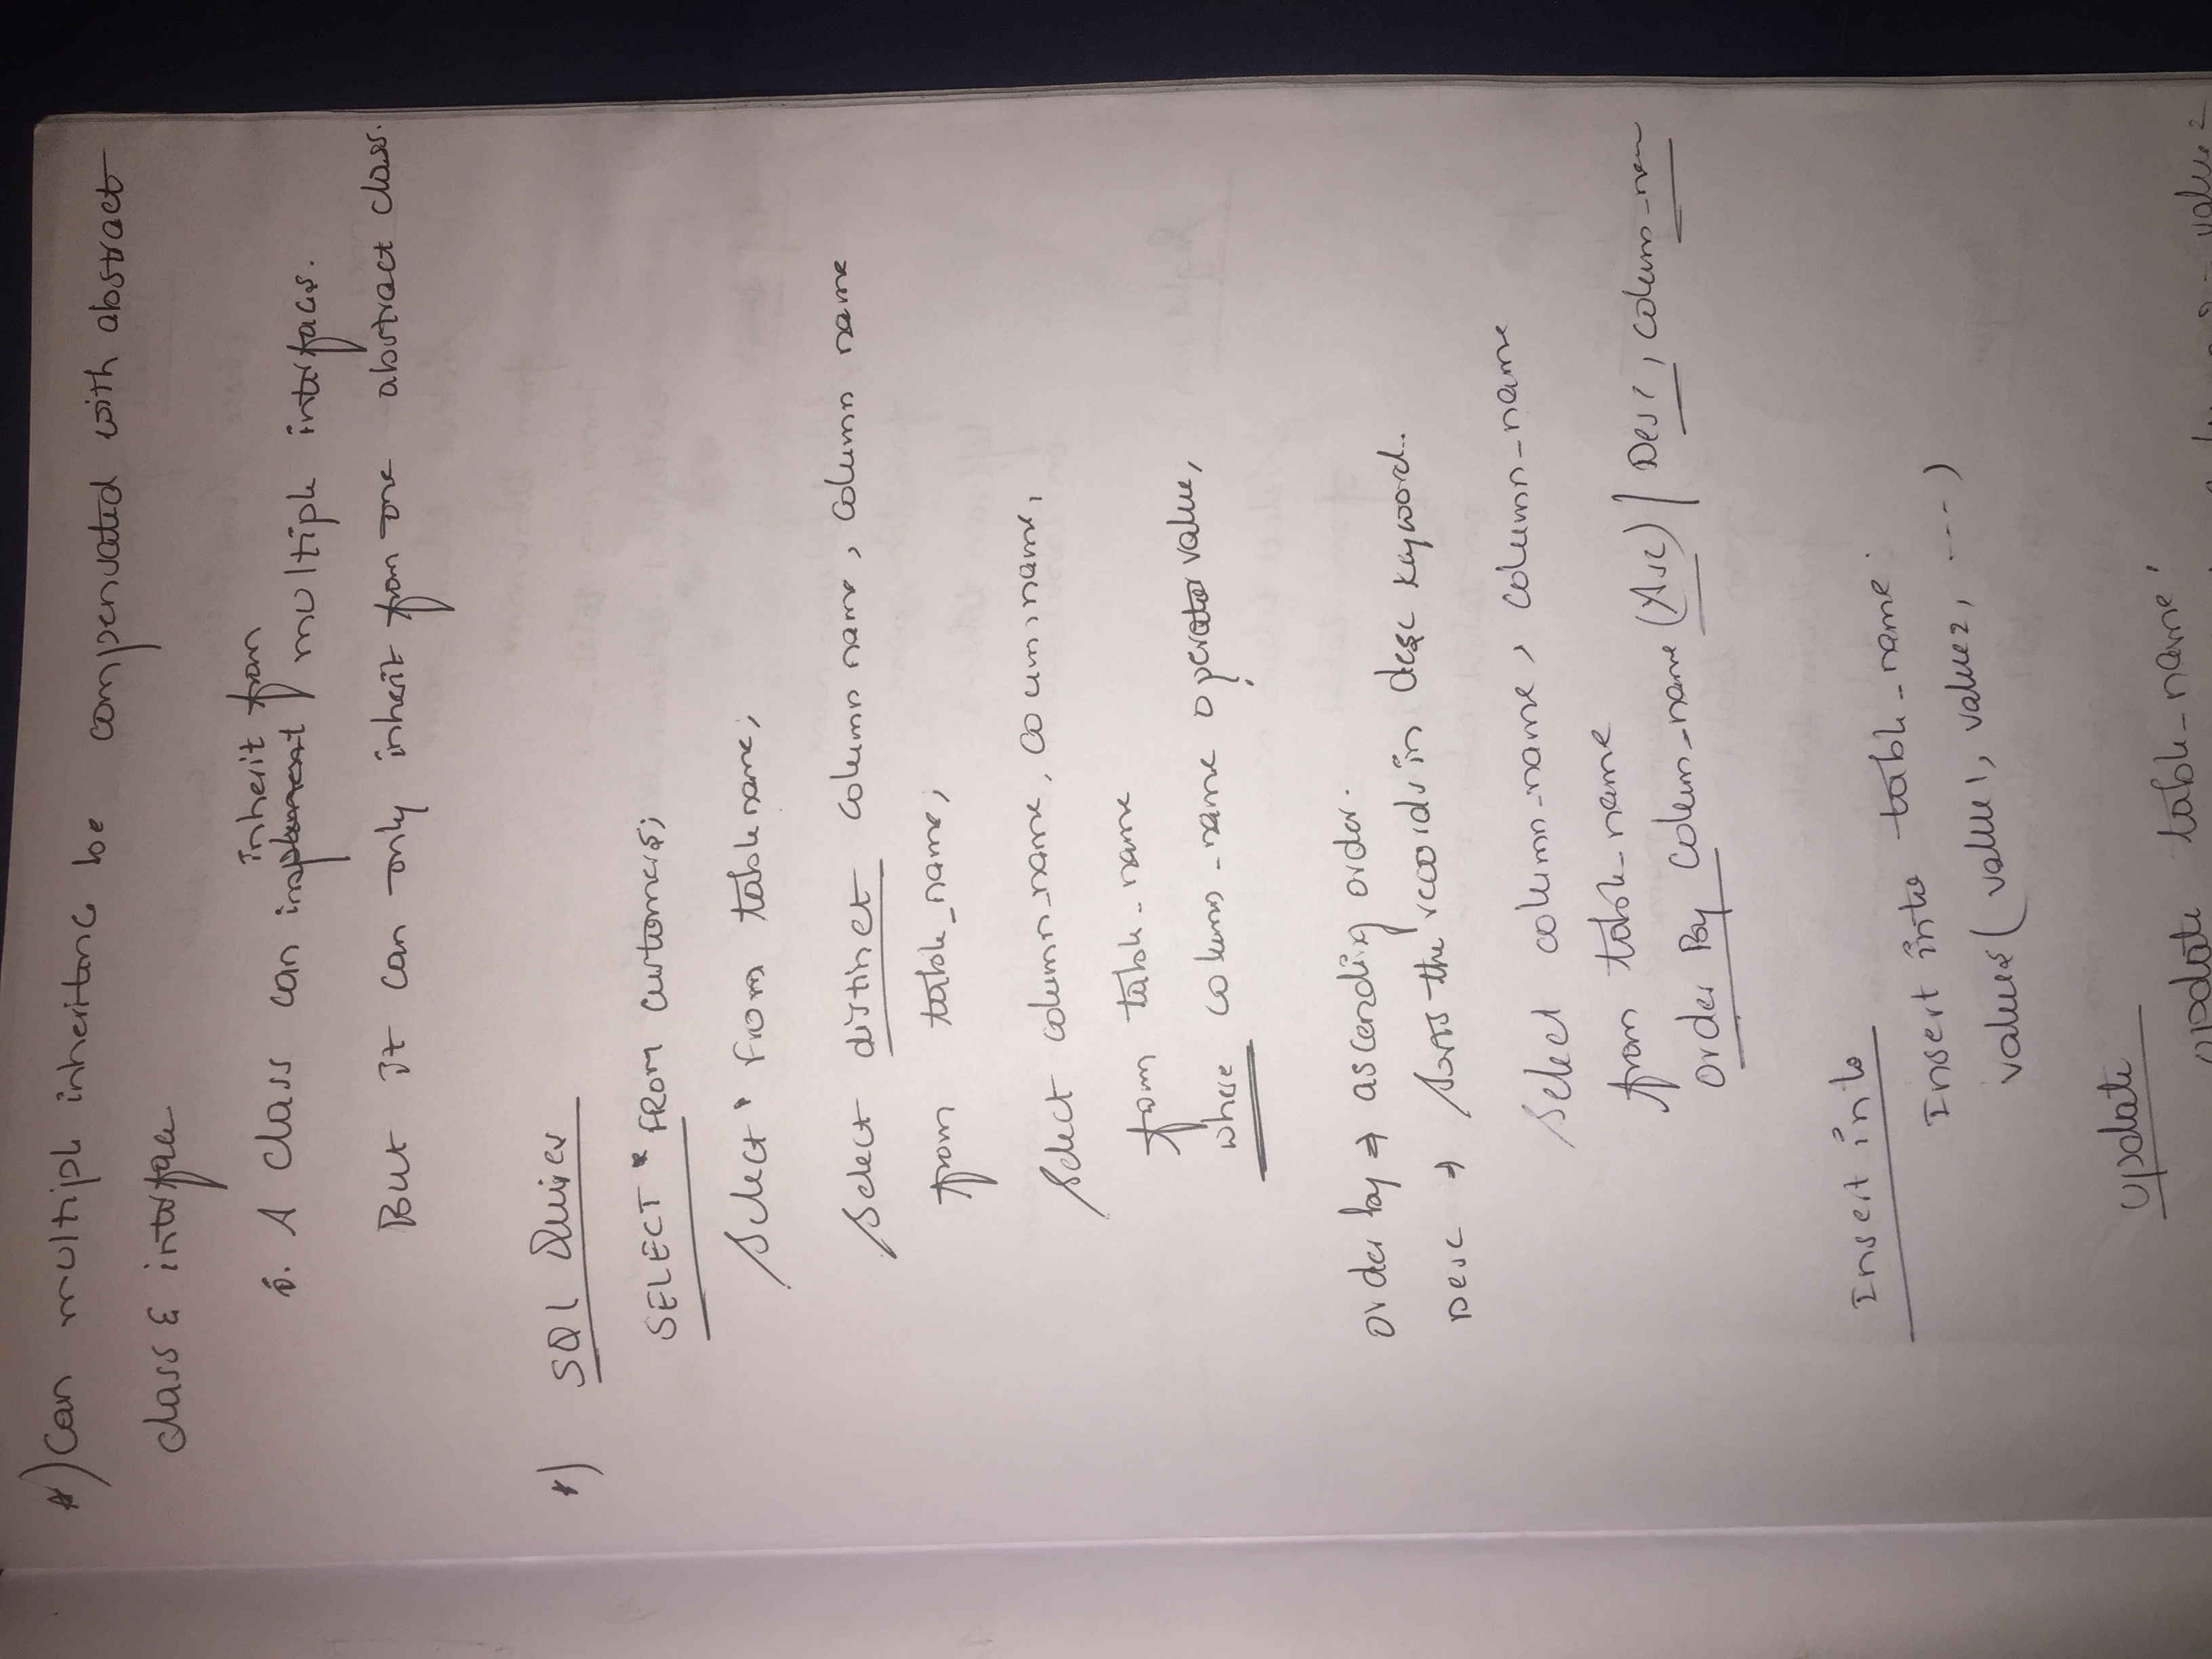 *) Can multiple inheritance be compensated with abstract
class & interface
i. A class can implement inherit from multiple interfaces.
But it can only inherit from one abstract class.
*) SQL Quires
SELECT * FROM customers;
Select * From table name;
Select distinct column name, column name
from table_name;
Select column_name, coumn name,
from table_name
where column_name operator value,
order by ⇒ ascending order.
Desc ⇒ Sorts the records in desc keyword.
Select column_name, column_name
from table_name
Order By Column_name (Asc) / Desc, column_name
Insert into
Insert into table_name
values( value1, value2, ---- )
Update
update table_name
value2